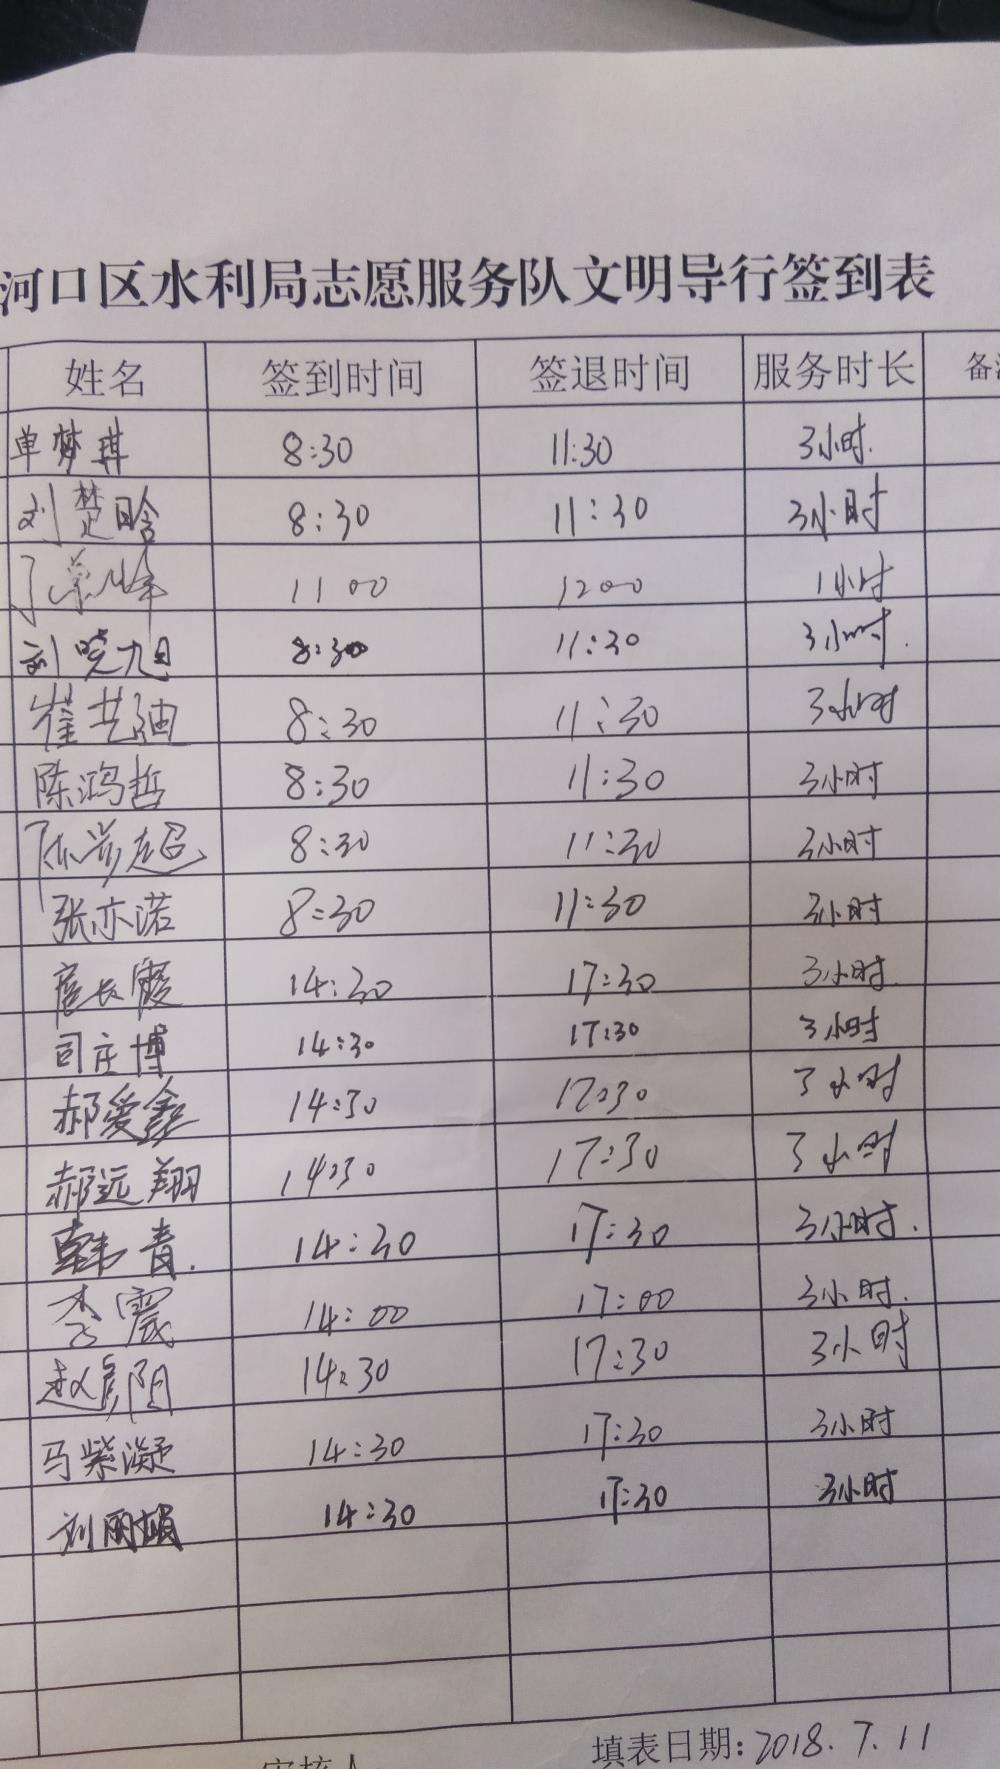 河口区水利局志愿服务队文明导行签到表
姓名 签到时间 签退时间 服务时长 备注
单梦琪 8:30 11:30 3小时.
刘楚晗 8:30 11:30 3小时
11 00 1200 1小时
刘晓旭 8:30 11:30 3小时.
崔艺迪 8:30 11:30 3小时
陈鸿哲 8:30 11:30 3小时
8:30 11:30 3小时
张亦诺 8:30 11:30 3小时
扈长霞 14:30 17:30 3小时
司庄博 14:30 17:30 3小时
郝爱鑫 14:30 17:30 3小时
郝远翔 14:30 17:30 3小时
韩青. 14:30 17:30 3小时.
李震 14:00 17:00 3小时.
14:30 17:30 3小时
马紫凝 14:30 17:30 3小时
14:30 17:30 3小时
审核人
填表日期:2018.7.11